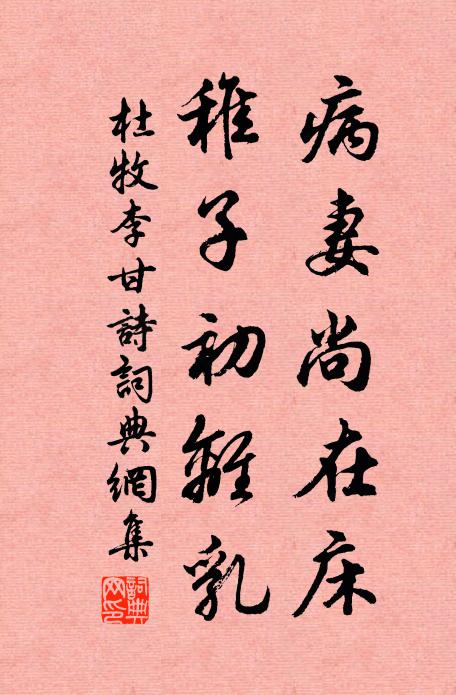 病妻尚在床
稚子初離乳
杜牧李甘詩詞典網集
詞典網印